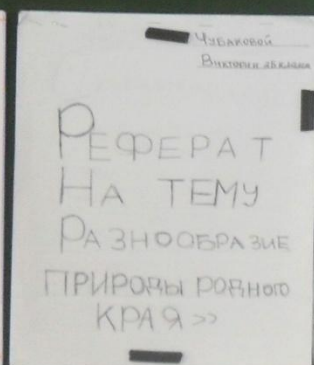 Чубаковой
Виктории 2Б класса
Реферат
На тему
Разнообразие
природы родного
края»